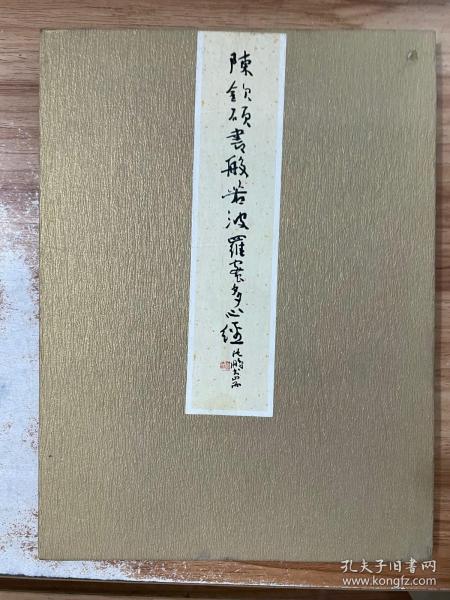 陳欽碩書般若波羅蜜多心經
沈鵬出函
孔夫子旧书网
www.kongfz.com